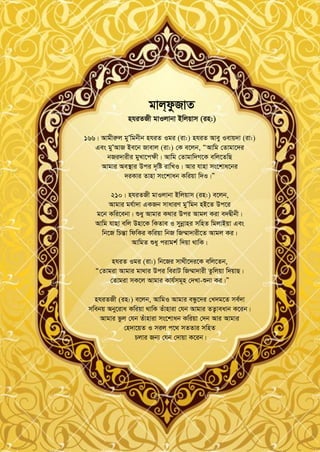 মালফুজাত
হযরতজী মাওলানা ইলিয়াস (রহঃ)
১৬৬। আমীরুল মু'মিনীন হযরত ওমর (রাঃ) হযরত আবু ওবায়দা (রাঃ)
এবং মু'আজ ইবনে জাবাল (রাঃ) কে বলেন, "আমি তোমাদের
নজরদারীর মুখাপেক্ষী। আমি তোমাদিগকে বলিতেছি
আমার অবস্থার উপর দৃষ্টি রাখিও। আর যাহা সংশোধনের
দরকার তাহা সংশোধন করিয়া দিও।"
২১০। হযরতজী মাওলানা ইলিয়াস (রহঃ) বলেন,
আমার মর্যাদা একজন সাধারণ মু'মিন হইতে উপরে
মনে করিবেনা। শুধু আমার কথার উপর আমল করা বদদ্বীনী।
আমি যাহা বলি উহাকে কিতাব ও সুন্নাহর সহিত মিলাইয়া এবং
নিজে চিন্তা ফিকির করিয়া নিজ জিম্মাদারীতে আমল কর।
আমিত শুধু পরামর্শ দিয়া থাকি।
হযরত ওমর (রাঃ) নিজের সাথীদেরকে বলিতেন,
"তোমরা আমার মাথার উপর বিরাট জিম্মাদারী তুলিয়া দিয়াছ।
তোমরা সকলে আমার কার্যসমূহ দেখা-শুনা কর।"
হযরতজী (রহঃ) বলেন, আমিও আমার বন্ধুদের খেদমতে সর্বদা
সবিনয় অনুরোধ করিয়া থাকি তাঁহারা যেন আমার তত্ত্বাবধান করেন।
আমার ভুল যেন তাঁহারা সংশোধন করিয়া দেন আর আমার
হেদায়েত ও সরল পথে সততার সহিত
চলার জন্য যেন দোয়া করেন।